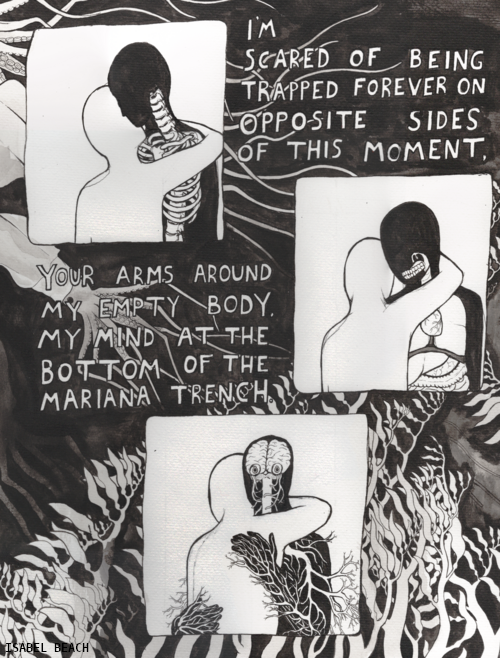 I'M
SCARED OF BEING
TRAPPED FOREVER ON
OPPOSITE SIDES
OF THIS MOMENT.
YOUR ARMS AROUND
MY EMPTY BODY.
MY MIND AT THE
BOTTOM OF THE
MARIANA TRENCH.
ISABEL BEACH